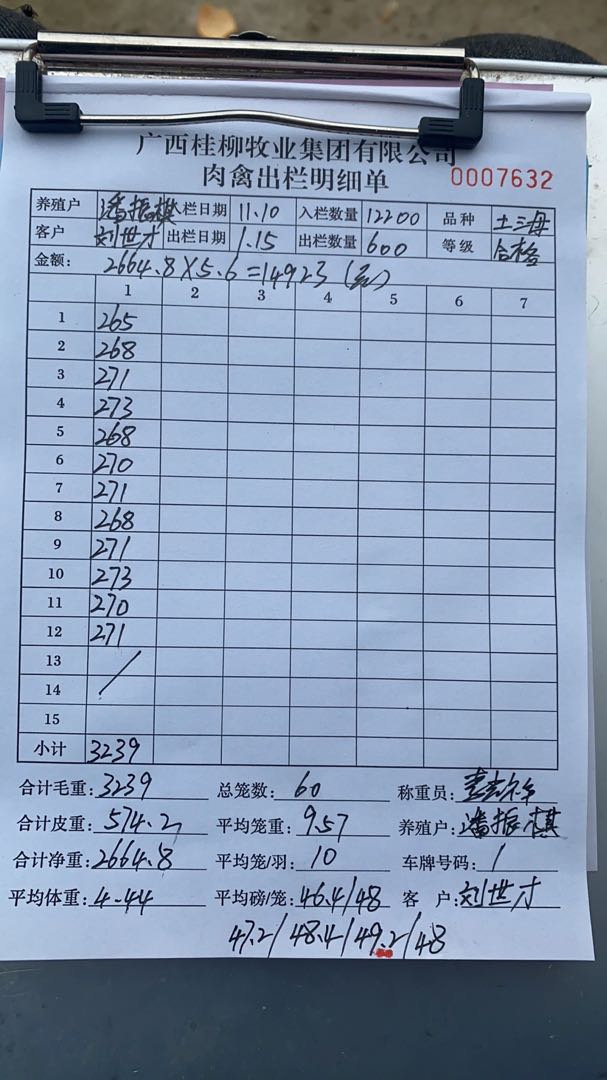 广西桂柳牧业集团有限公司
肉禽出栏明细单 0007632
养殖户 潘振棋 入栏日期 11.10 入栏数量 12200 品种 土三母
客户 刘世才 出栏日期 1.15 出栏数量 600 等级 合格
金额: 2664.8×5.6=14923
1 2 3 4 5 6 7
1 265
2 268
3 271
4 273
5 268
6 270
7 271
8 268
9 271
10 273
11 270
12 271
13 /
14
15
小计 3239
合计毛重: 3239 总笼数: 60 称重员:
合计皮重: 574.2 平均笼重: 9.57 养殖户: 潘振棋
合计净重: 2664.8 平均笼/羽: 10 车牌号码: 1
平均体重: 4.44 平均磅/笼: 46.4/48 客户: 刘世才
47.2/48.4/49.2/48